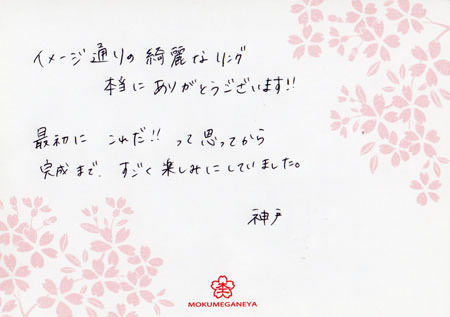 イメージ通りの綺麗なリング
本当にありがとうございます!!
最初に これだ!! って思ってから
完成まで、すごく楽しみにしていました。
神戸
MOKUMEGANEYA